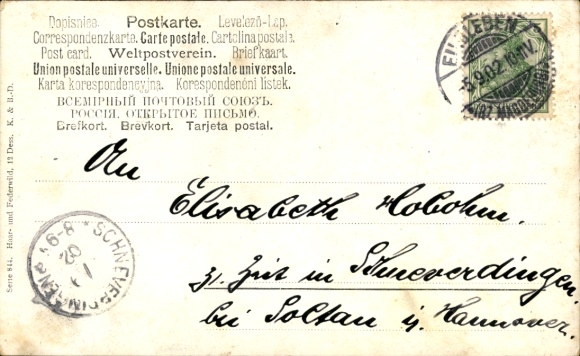 Dopisnice. Postkarte. Levelező-Lap.
Correspondenzkarte. Carte postale. Cartolina postale.
Post card. Weltpostverein. Briefkaart.
Union postale universelle. Unione postale universale.
Karta korespondencyjna. Korespondenčni listek.
ВСЕМІРНЫЙ ПОЧТОВЫЙ СОЮЗЪ.
РОССІЯ. ОТКРЫТОЕ ПИСЬМО.
Brefkort. Brevkort. Tarjeta postal.
EILSLEBEN
-8.9.02. 10-11V.
An
Elisabeth Hobohm.
z. Zeit in Schneverdingen
bei Soltau i. Hannover.
SCHNEVERDINGEN
8-9
02
Serie 844. Haar- und Federwild, 12 Dess. K. & B.-D.